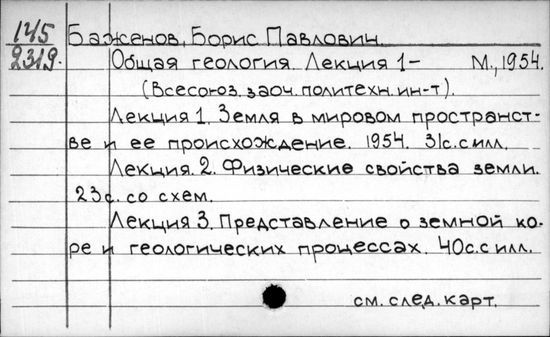 145 Баженов, Борис Павлович
2319. Общая геология. Лекция 1- М., 1954.
(Всесоюз. заоч. политехн. ин-т).
Лекция 1. Земля в мировом пространст-
ве и ее происхождение. 1954. 31с. с илл.
Лекция. 2. Физические свойства земли.
23с. со схем.
Лекция 3. Представление о земной ко-
ре и геологических процессах. 40с. с илл.
см. след. карт.